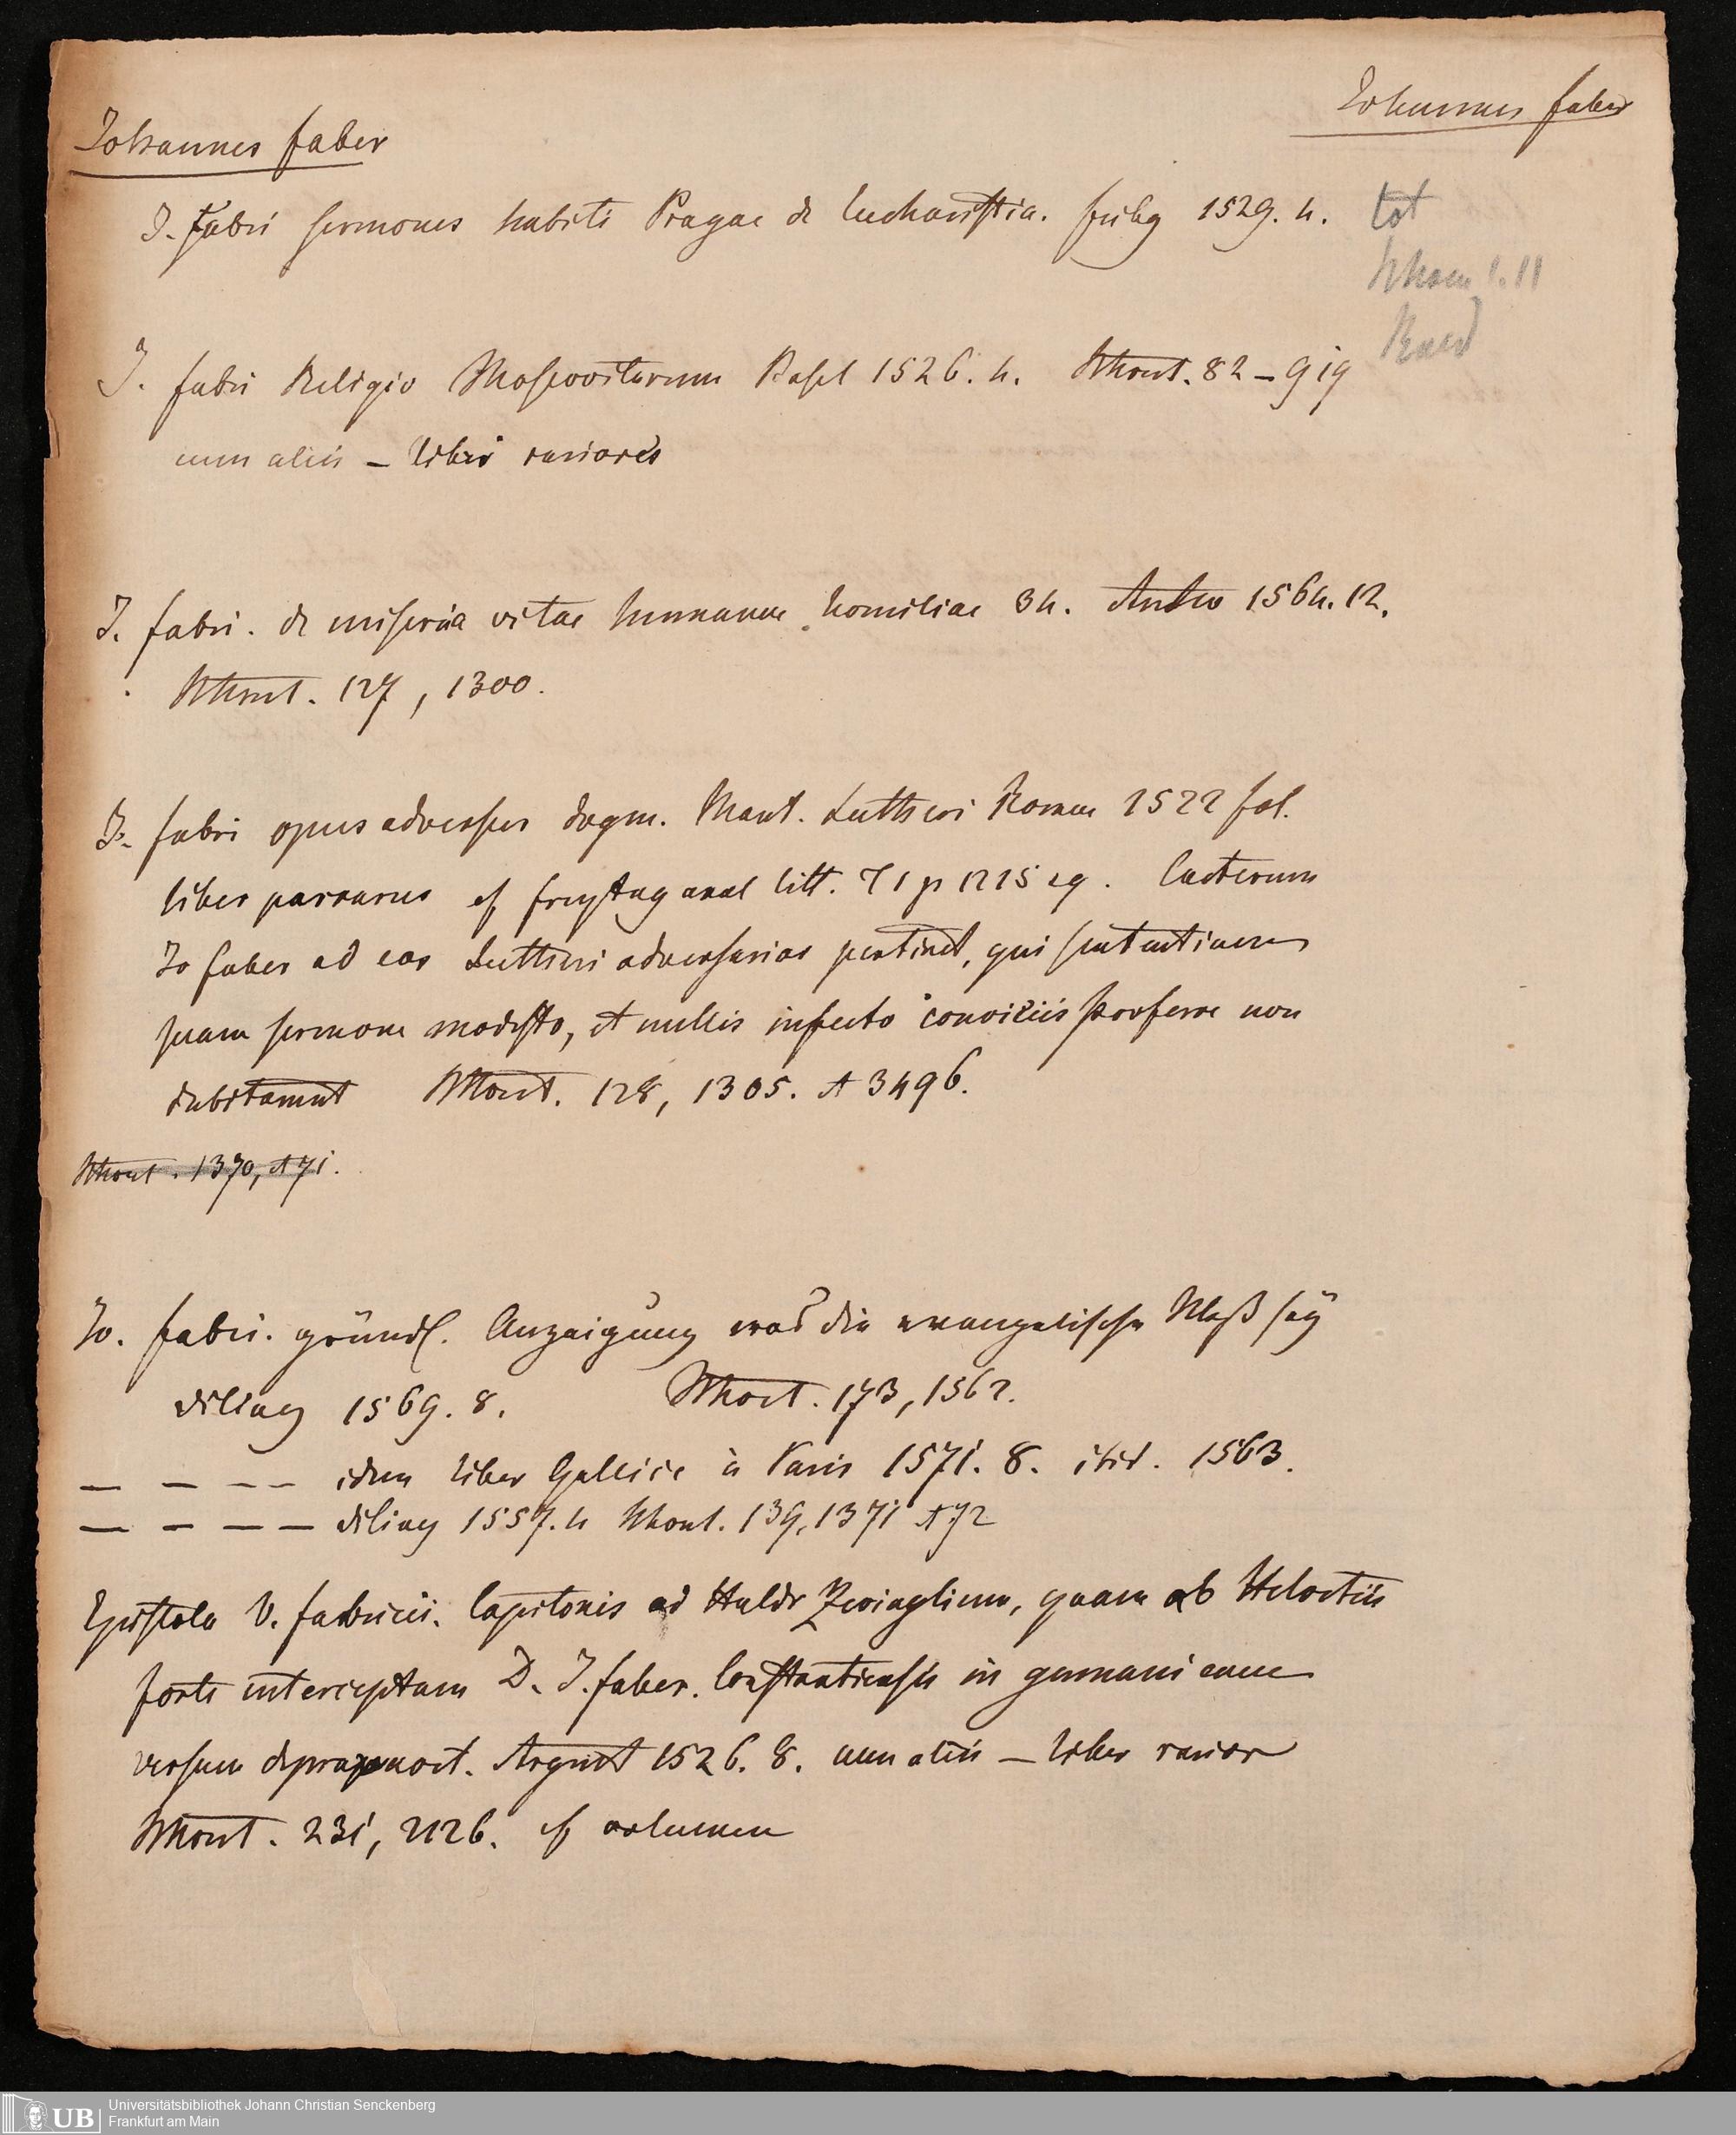 Johannes Faber
Johannes Faber
J. Fabri sermones habiti Pragae de Eucharistia. Fribg 1529. 4.
tot
J. Fabri Religio Moscovitarum Basel 1526. 4. 82 – 919
cum aliis – Liber rarioris
J. Fabri. de miseria vitae humanae homiliae 34. Antw 1564. 12.
127, 1300.
J. Fabri opus adversus dogm. Mart. Lutheri Romae 1522 fol.
liber perrarus cf Freytag anal litt. T 1 p 1215 sq. Caeterum
Jo Faber ad eos Lutheri adversarios pertinet, qui sententiam
suam sermone modesto, et nullis infecto conviciis proferre non
dubitarunt 128, 1305. et 3496.
1370, et 71.
Jo. Fabri. gründl. Anzaigung was die evangelische Meß sey
diling 1569. 8. 173, 1562.
– – – – idem liber Gallice à Paris 1571. 8. ibid. 1563.
– – – – diling 1557. 4 139, 1371 et 72
Epistola V. Fabricii. Capitonis ad Huldr Zwinglium, quam ab Helvetiis
forte interceptam D. J. Faber. Constantiensis in germanicum
versam depravavit. Argent 1526. 8. cum aliis – Liber rarior
231, 2126. cf volumen
Universitätsbibliothek Johann Christian Senckenberg
Frankfurt am Main
UB